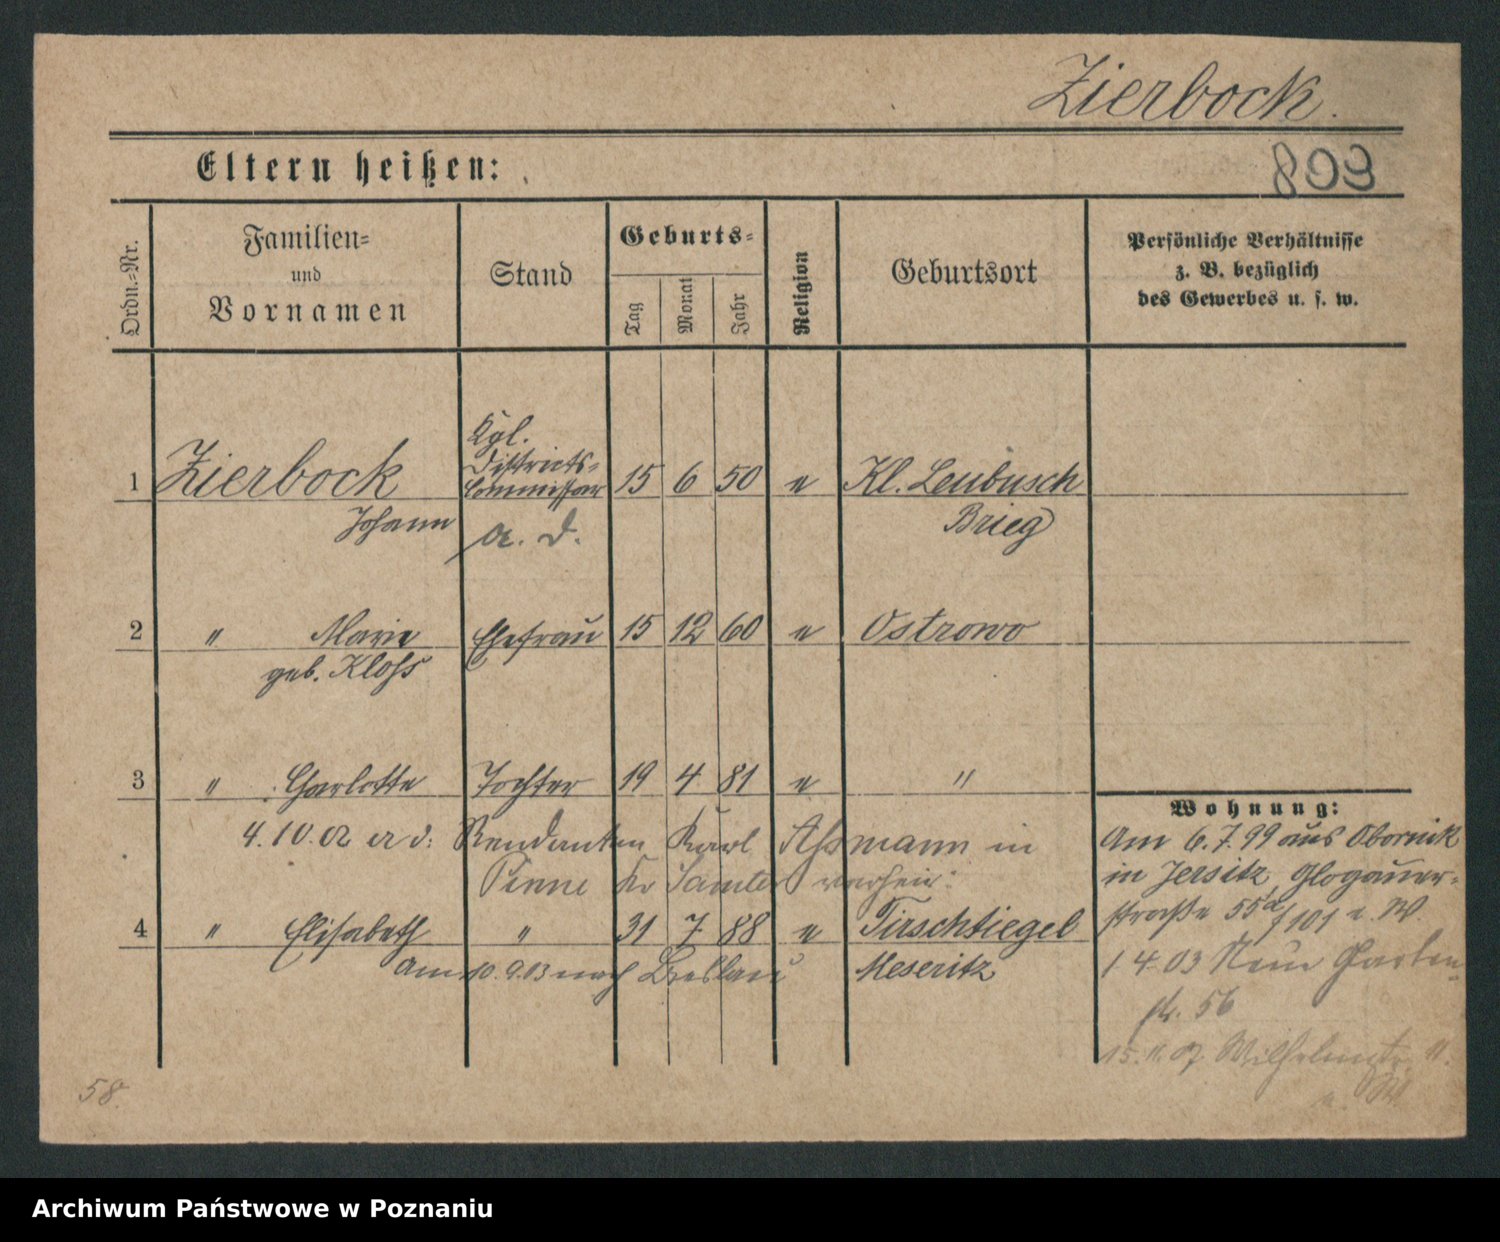 Zierbock.
Eltern heißen:
893
Ordn.-Nr.
Familien-
und
Vornamen
Stand
Geburts-
Tag
Monat
Jahr
Religion
Geburtsort
Persönliche Verhältnisse
z. B. bezüglich
des Gewerbes u. s. w.
Kgl.
Districts-
1 Zierbock Commissar 15 6 50 e Kl. Leubusch
Johann a. D. Brieg
2 " Marie Ehefrau 15 12 60 e Ostrowo
geb. Kloss
3 " Charlotte Tochter 19 4 81 e "
4. 10. 02 an d. Rendanten Karl Assmann in
Pinne Kr Samter verheir.
4 " Elisabeth " 31 7 88 e Tirschtiegel
Am 10. 9. 03 nach Breslau Meseritz
Wohnung:
Am 6. 7. 99 aus Obornik
in Jersitz, Glogauer-
straße 55a/101 e. W.
1 4 03 Neue Garten-
str. 56
15. 11. 07 Wilhelmstr. 11.
58.
Archiwum Państwowe w Poznaniu